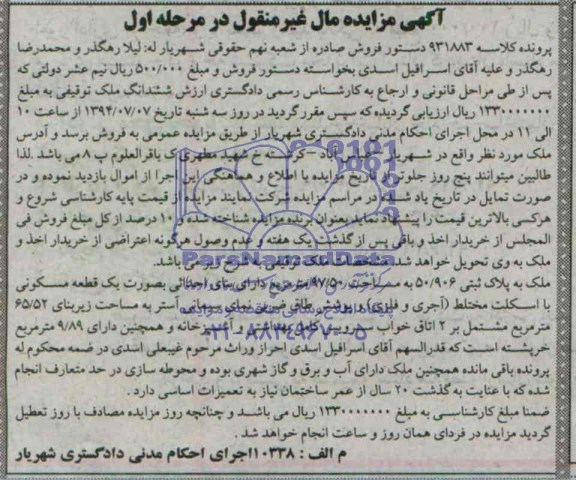 آگهی مزایده مال غیرمنقول در مرحله اول
پرونده کلاسه ۹۳۱۸۸۳ دستور فروش صادره از شعبه نهم حقوقی شهریار له: لیلا رهگذر و محمدرضا
رهگذر و علیه آقای اسرافیل اسدی بخواسته دستور فروش و مبلغ ۵۰۰/۰۰۰ ریال نیم عشر دولتی که
پس از طی مراحل قانونی و ارجاع به کارشناس رسمی دادگستری ارزش ششدانگ ملک توقیفی به مبلغ
۱۳۳۰۰۰۰۰۰۰ ریال ارزیابی گردیده که سپس مقرر گردید در روز سه شنبه تاریخ ۱۳۹۴/۰۷/۰۷ از ساعت ۱۰
الی ۱۱ در محل اجرای احکام مدنی دادگستری شهریار از طریق مزایده عمومی به فروش برسد و آدرس
ملک مورد نظر واقع در شهریار آباد - کرسته خ شهید مطهری ک باقرالعلوم پ ۸ می باشد. لذا
طالبین میتوانند پنج روز جلوتر از تاریخ مزایده با اطلاع و هماهنگی این اجرا از اموال بازدید نموده و در
صورت تمایل در تاریخ یاد شده در مراسم مزایده شرکت نمایند مزایده از قیمت پایه کارشناسی شروع و
هرکسی بالاترین قیمت را پیشنهاد نماید بعنوان برنده مزایده شناخته شده و ۱۰ درصد از کل مبلغ فروش فی
المجلس از خریدار اخذ و باقی پس از گذشت یک هفته و عدم وصول هرگونه اعتراضی از خریدار اخذ و
ملک به وی تحویل خواهد شد. مشخصات ملک توقیفی به شرح زیر می باشد.
ملک به پلاک ثبتی ۵۰/۹۰۶ به مساحت ۹۷/۵۰ مترمربع دارای بنای احداثی بصورت یک قطعه مسکونی
با اسکلت مختلط (آجری و فلزی) و پوشش طاق ضربی نمای سیمانی آستر به مساحت زیربنای ۶۵/۵۲
مترمربع مشتمل بر ۲ اتاق خواب سرویس کامل بهداشتی و آشپزخانه و همچنین دارای ۹/۸۹ مترمربع
خرپشته است که قدرالسهم آقای اسرافیل اسدی احراز وراث مرحوم غیبعلی اسدی در ضمه محکوم له
پرونده باقی مانده همچنین ملک دارای آب و برق و گاز شهری بوده و محوطه سازی در حد متعارف انجام
شده که با عنایت به گذشت ۲۰ سال از عمر ساختمان نیاز به تعمیرات اساسی دارد.
ضمنا مبلغ کارشناسی به مبلغ ۱۳۳۰۰۰۰۰۰۰ ریال می باشد و چنانچه روز مزایده مصادف با روز تعطیل
گردید مزایده در فردای همان روز و ساعت انجام خواهد شد.
م الف: ۱۰۳۳۸ اجرای احکام مدنی دادگستری شهریار
ParsNamadData
۰۲۱-۸۸۳۴۹۶۷۰-۵